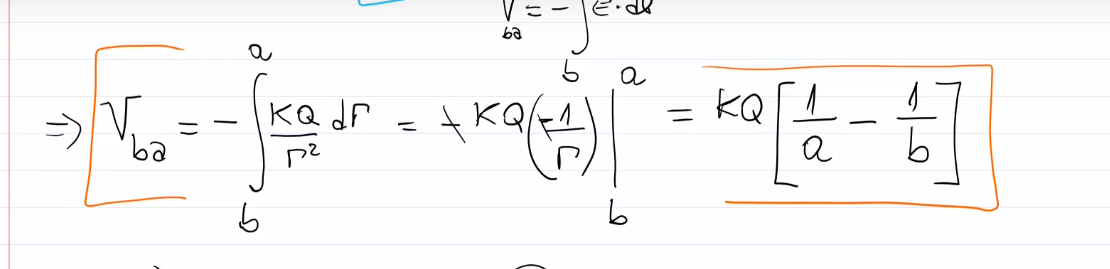 V_ba = - ∫_b E·dℓ
⇒ V_ba = - ∫_b^a KQ/r² dr = + KQ(-1/r) |_b^a = KQ[1/a - 1/b]